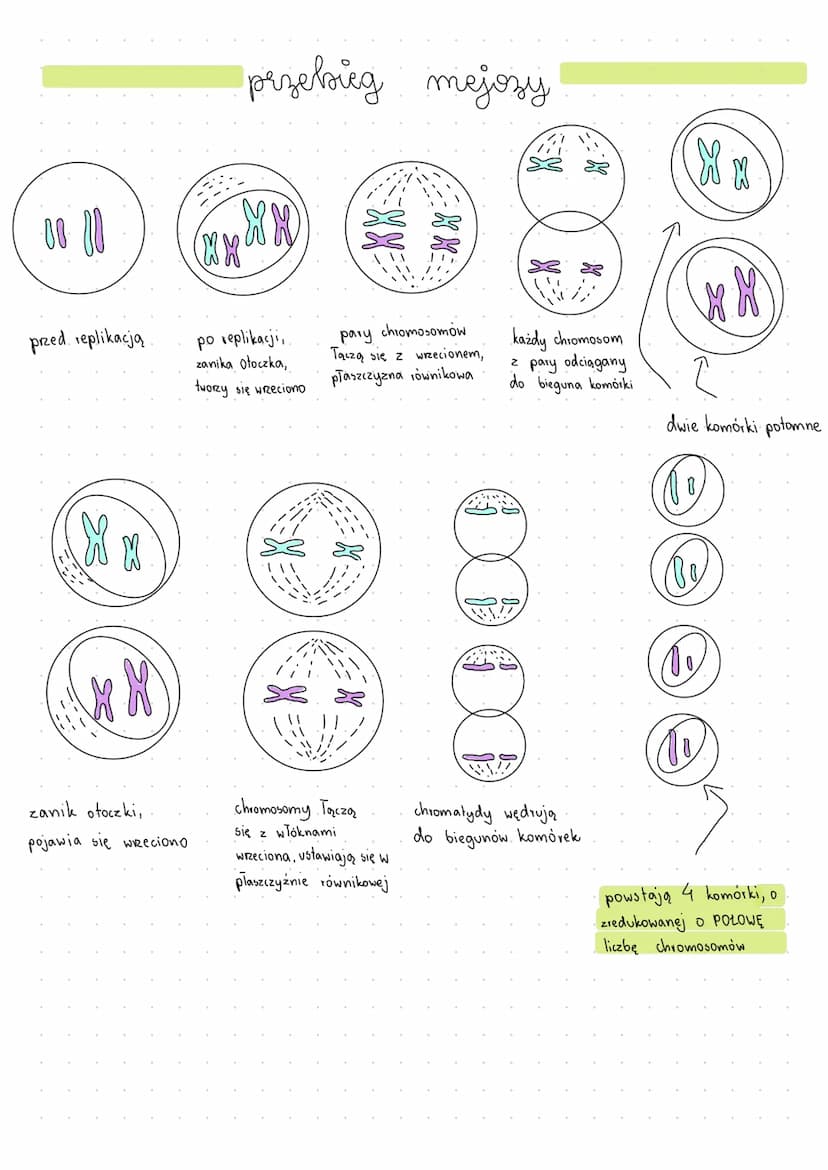 przebieg mejozy
przed replikacją
po replikacji,
zanika otoczka,
tworzy się wrzeciono
pary chromosomów
łączą się z wrzecionem,
płaszczyzna równikowa
każdy chromosom
z pary odciągany
do bieguna komórki
dwie komórki potomne
zanik otoczki,
pojawia się wrzeciono
chromosomy łączą
się z włóknami
wrzeciona, ustawiają się w
płaszczyźnie równikowej
chromatydy wędrują
do biegunów komórek
powstają 4 komórki, o
zredukowanej o POŁOWĘ
liczbę chromosomów